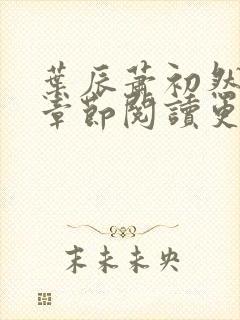 葉辰蕭初然
章節閱讀更
末未未央